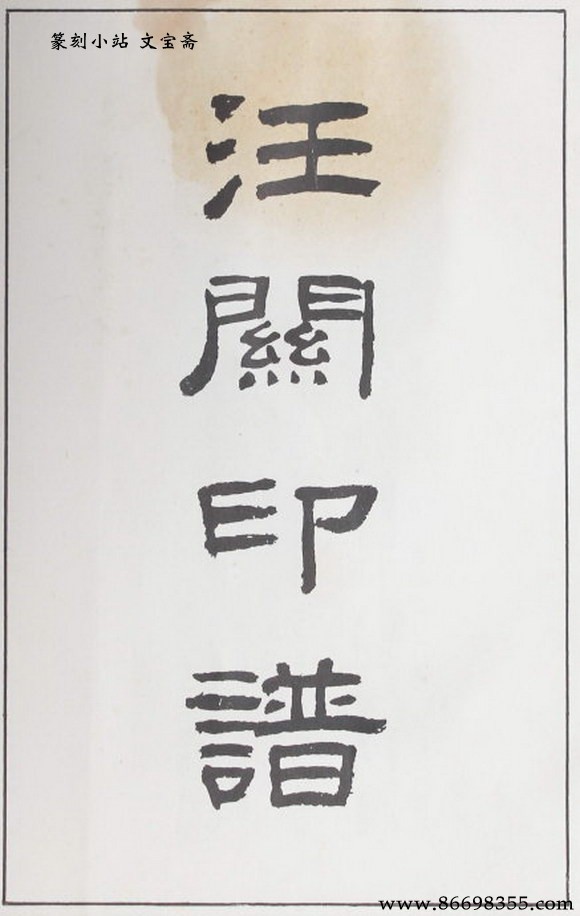 篆刻小站 文宝斋
汪關印譜
www.86698355.com